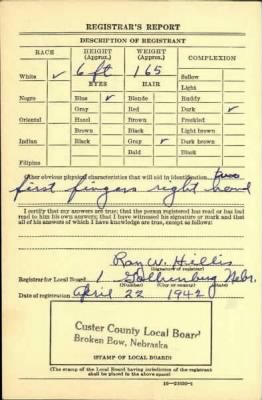 REGISTRAR'S REPORT
DESCRIPTION OF REGISTRANT
RACE HEIGHT (Approx.) WEIGHT (Approx.) COMPLEXION
6 ft 165
White ✓ EYES HAIR Sallow
Light
Negro Blue ✓ Blonde Ruddy
Gray Red Dark ✓
Oriental Hazel Brown Freckled
Brown Black Light brown
Indian Black Gray ✓ Dark brown
Bald Black
Filipino
Other obvious physical characteristics that will aid in identification two
first fingers right hand
I certify that my answers are true; that the person registered has read or has had
read to him his own answers; that I have witnessed his signature or mark and that
all of his answers of which I have knowledge are true, except as follows:
Ray W. Hillis
(Signature of registrar)
Registrar for Local Board 1 Gothenburg Nebr.
(Number) (City or county) (State)
Date of registration April 22 1942
Custer County Local Board
Broken Bow, Nebraska
(STAMP OF LOCAL BOARD)
(The stamp of the Local Board having jurisdiction of the registrant
shall be placed in the above space)